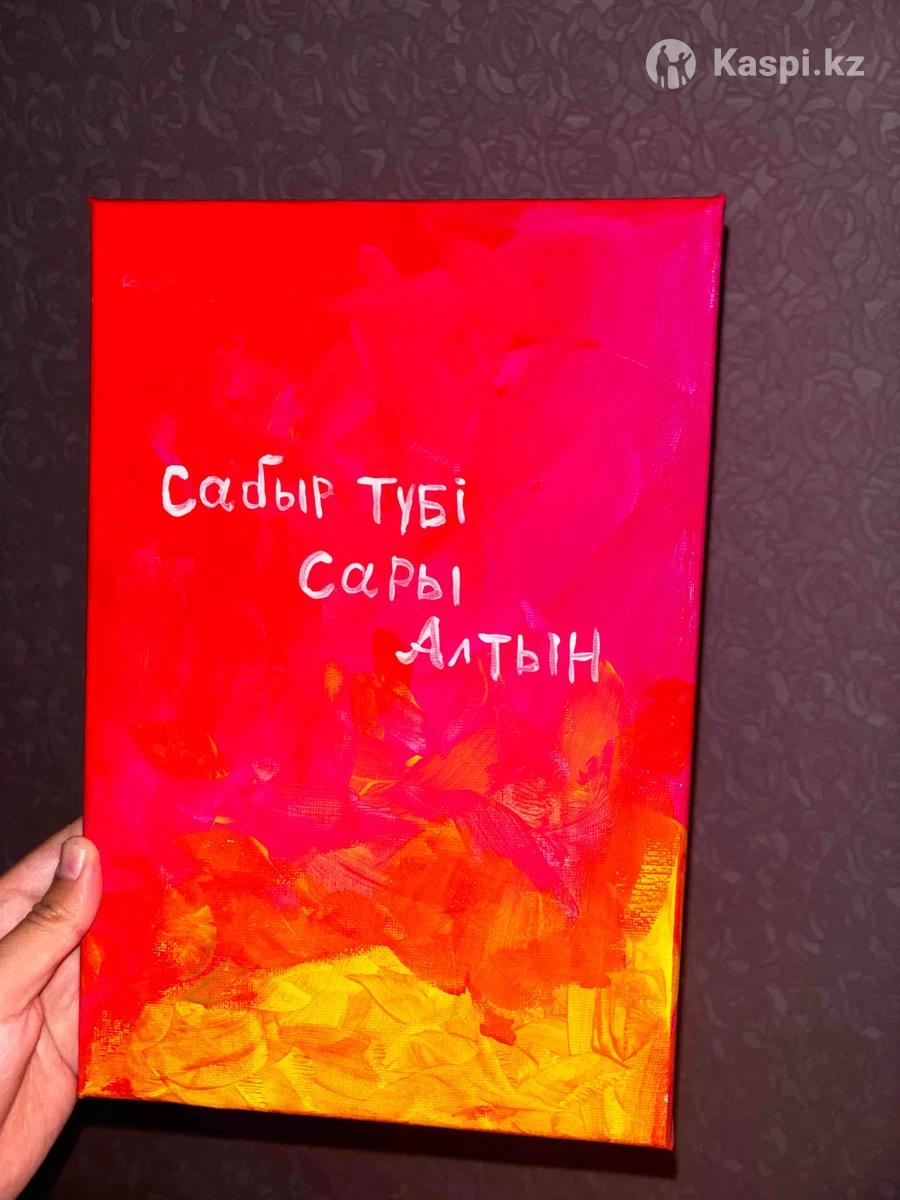 Kaspi.kz
Сабыр түбі
Сары
Алтын